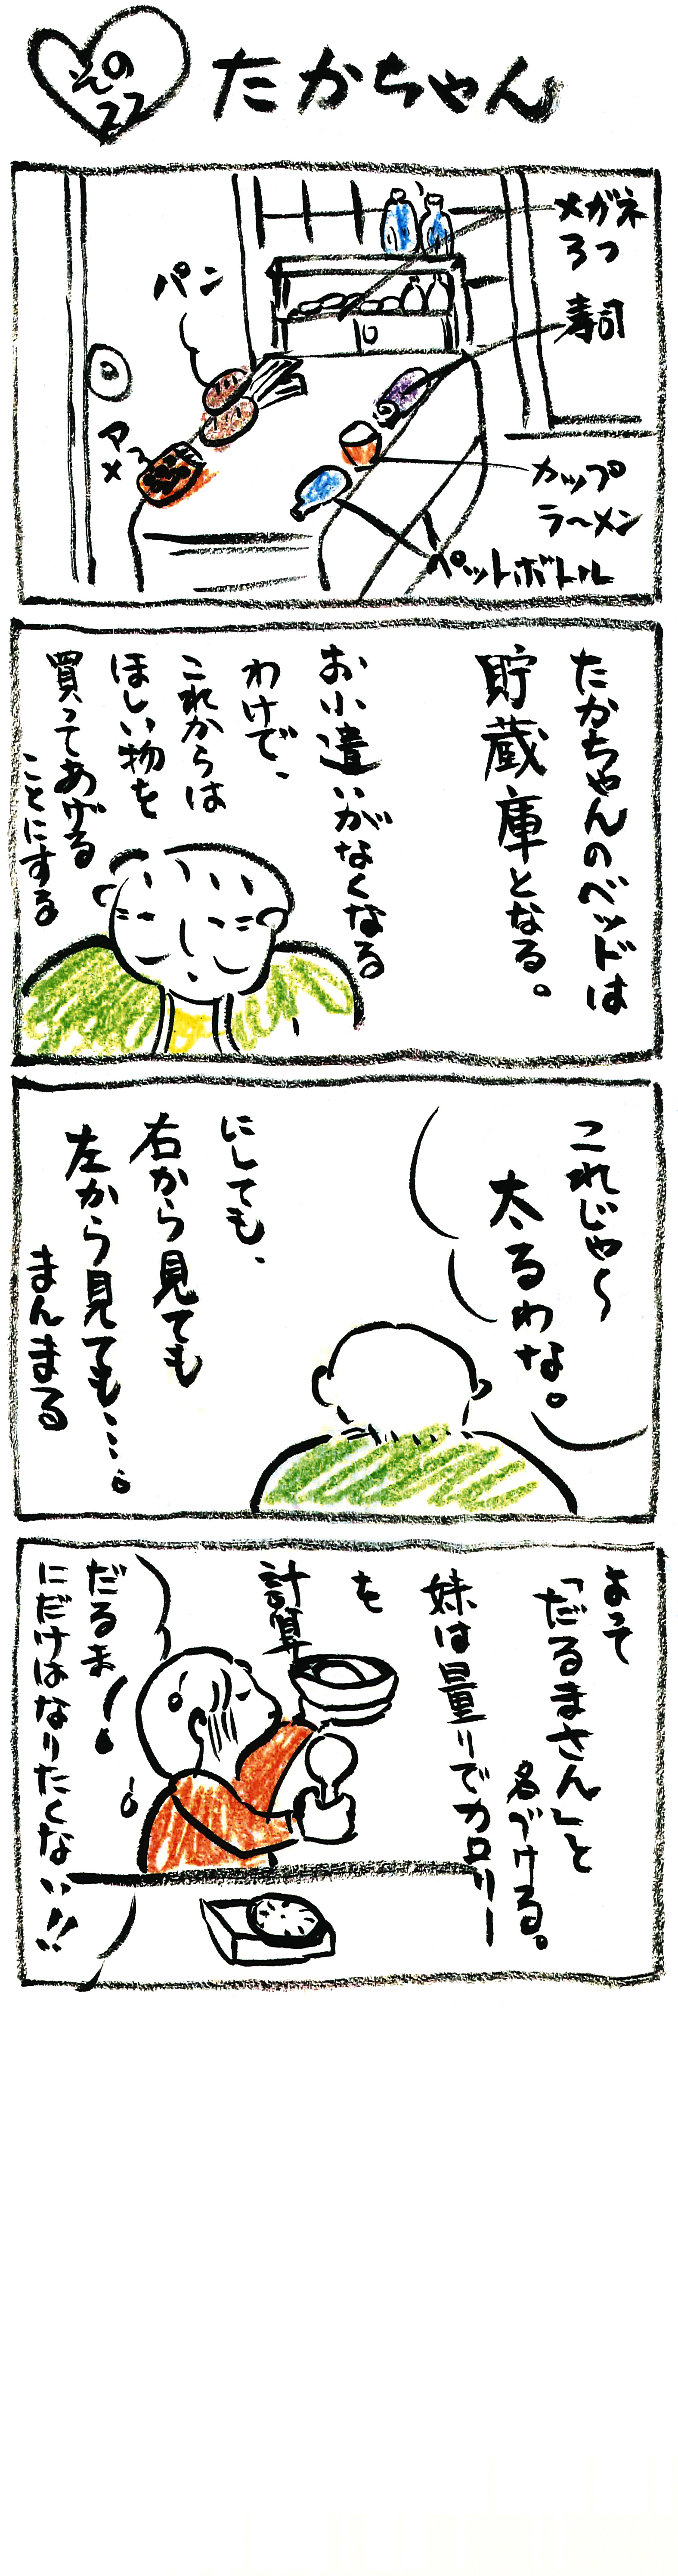 その22
たかちゃん
メガネ
3つ
寿司
パン
アメ
カップ
ラーメン
ペットボトル
たかちゃんのベッドは
貯蔵庫となる。
お小遣いがなくなる
わけで、
これからは
ほしい物を
買ってあげる
ことにする
これじゃ〜
太るわな。
にしても、
右から見ても
左から見ても…。
まんまる
よって
「だるまさん」と
名づける。
妹は量りでカロリー
を
計算
だるま
にだけはなりたくない!!